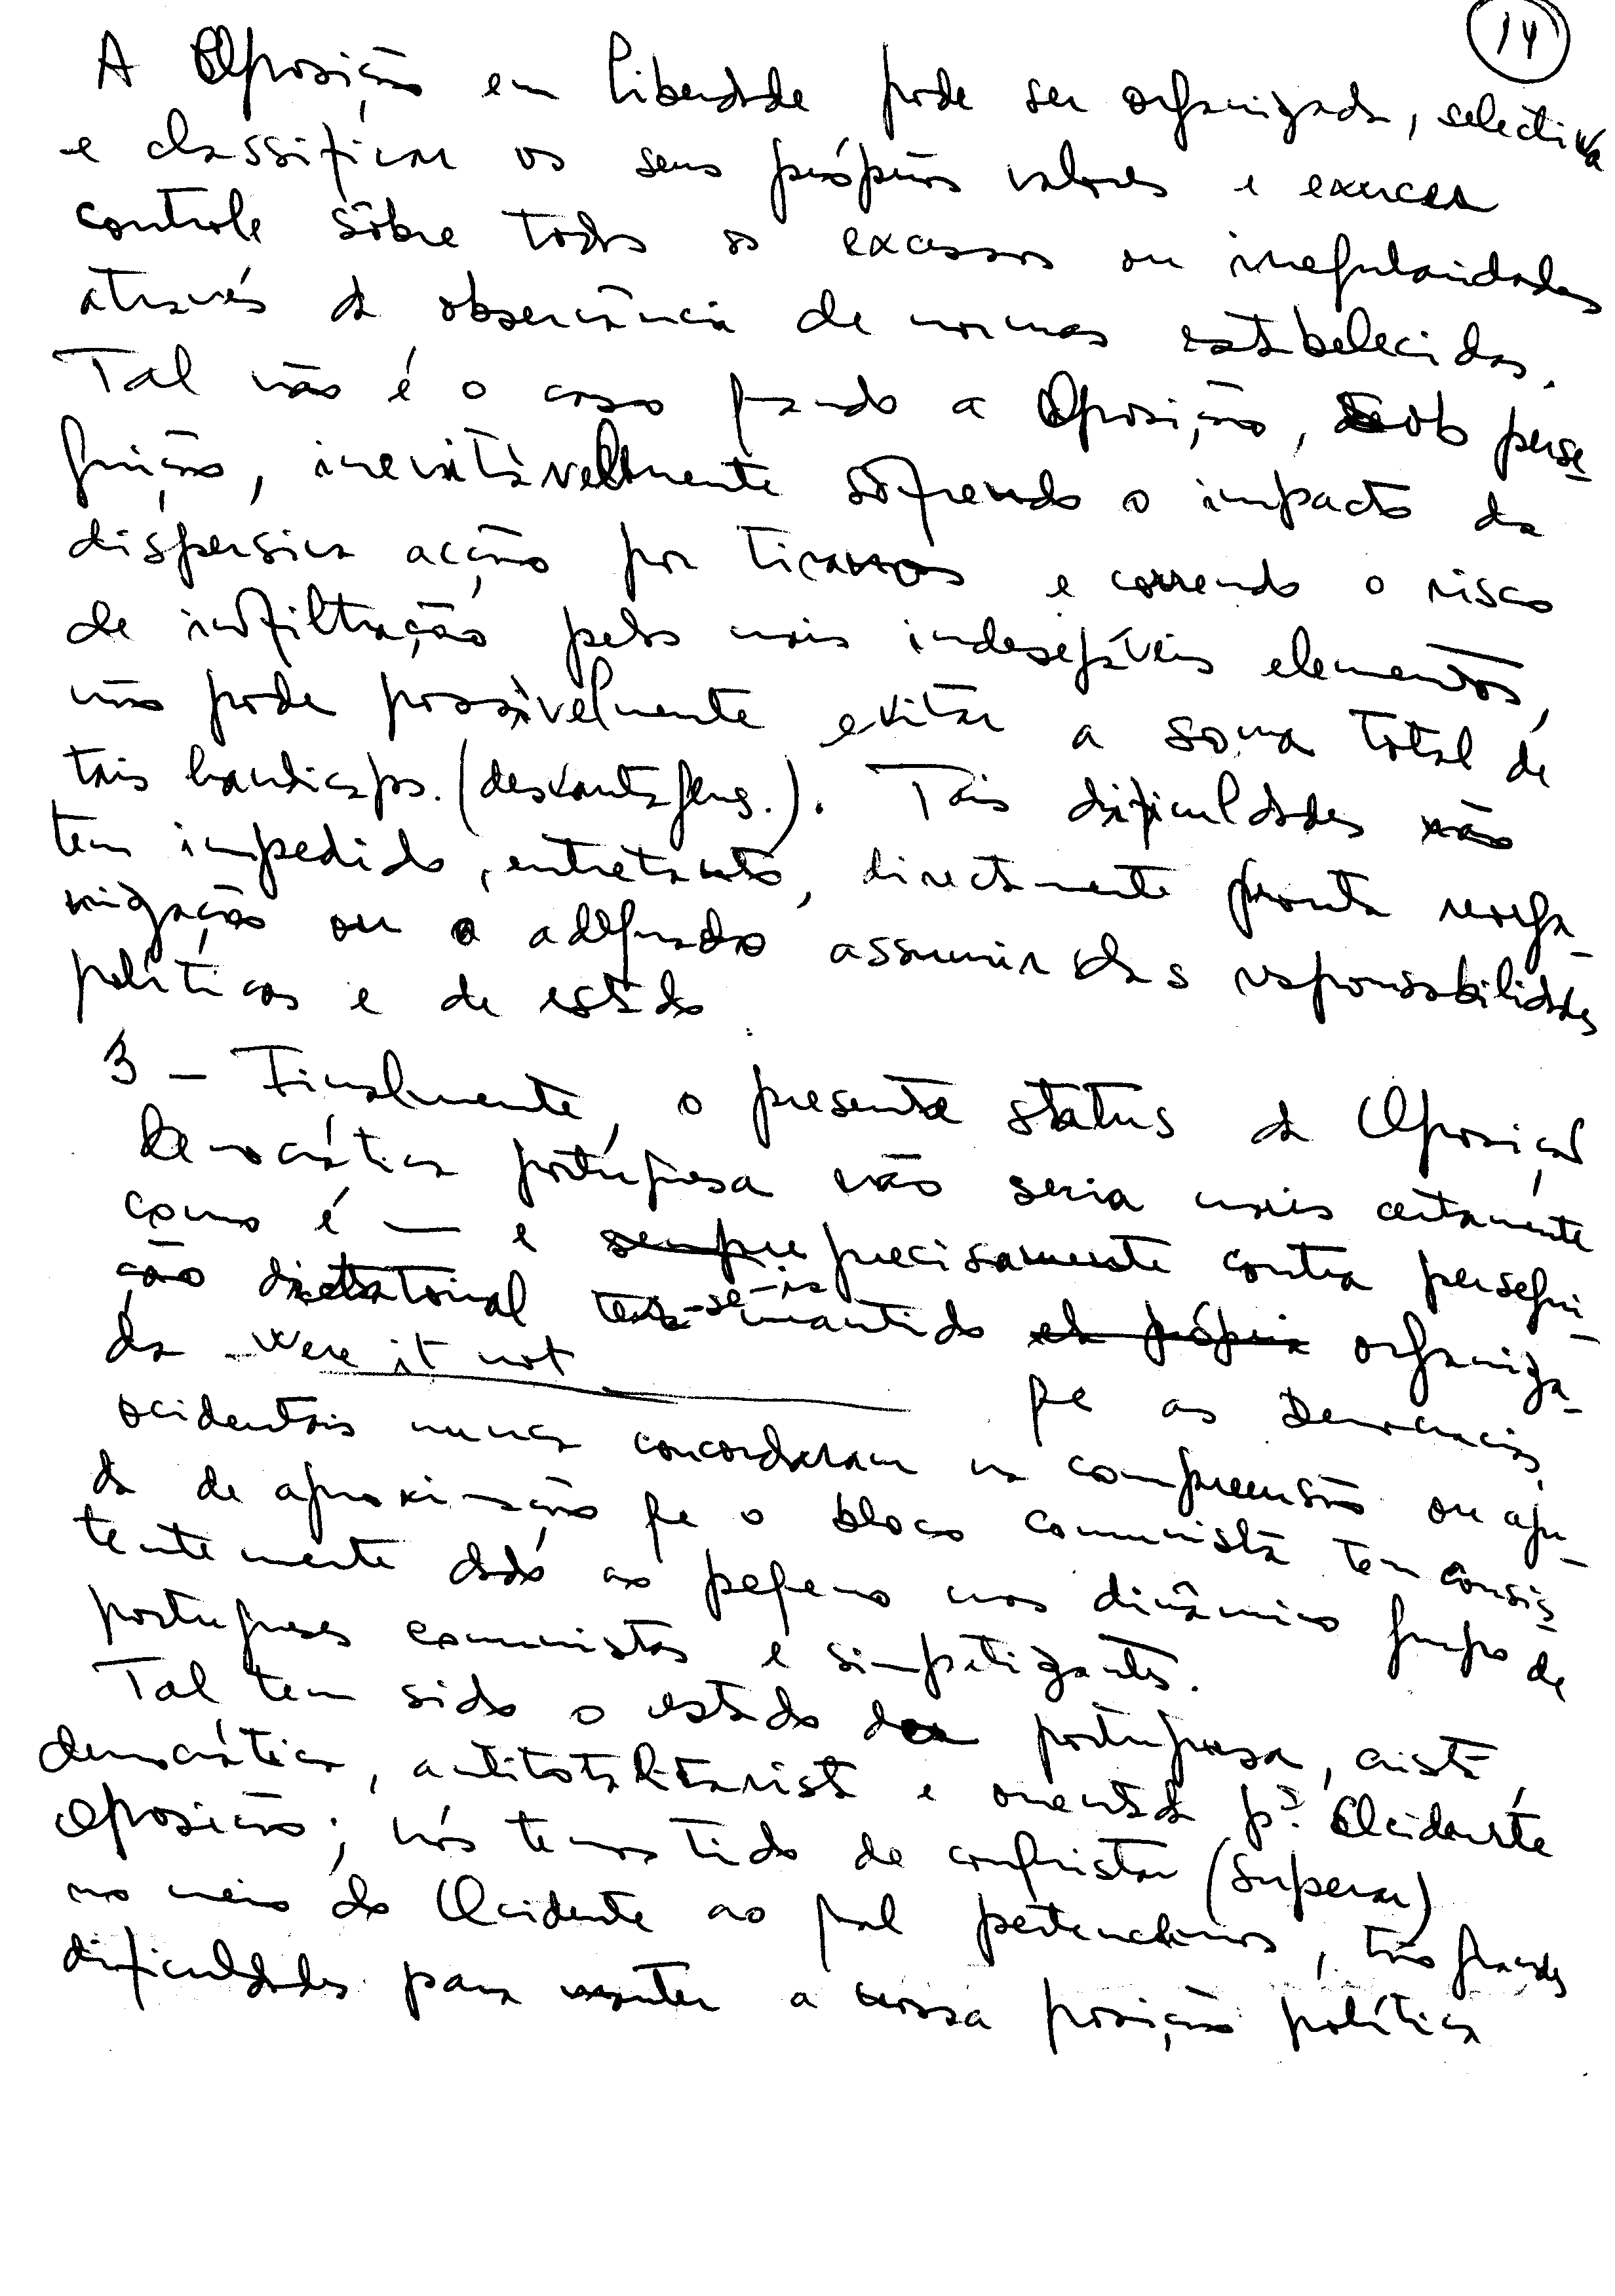 14
A Oposição em liberdade pode ser organizada, selectiva
e classificar os seus próprios valores e exercer
controle sôbre todos os excessos ou irregularidades
através da observância de normas estabelecidas.
Tal não é o caso quando a Oposição, sob perse
guição, inevitàvelmente sofrendo o impacto da
dispersiva acção por tiranos e correndo o risco
de infiltração pelos mais indesejáveis elementos,
não pode possìvelmente evitar a soma total de
tais handicaps. (desvantagens.). Tais dificuldades não
tem impedido, entretanto, directamente pronta reorga-
nização ou o adequado assumir das responsabilidades
políticas e de estado
3 – Finalmente, o presente status da Oposição
Democrática portuguesa não seria mais certamente
como é — e sempre precisamente contra persegui
ção dictatorial ter-se-ia mantido ela própria organiza-
da – were it not que as Democracias
ocidentais nunca concordaram na compreensão ou aju-
da de aproximação que o bloco comunista tem consis
tentemente dado ao pequeno mas dinâmico grupo de
portugueses comunistas e simpatizantes.
Tal tem sido o estado da portuguesa, cristã,
democrática, antitotalitarista e orientada pª Ocidente
Oposição; nós temos tido de conquistar (superar)
no meio do Ocidente ao qual pertencemos, tão grandes
dificuldades para manter a nossa posição política